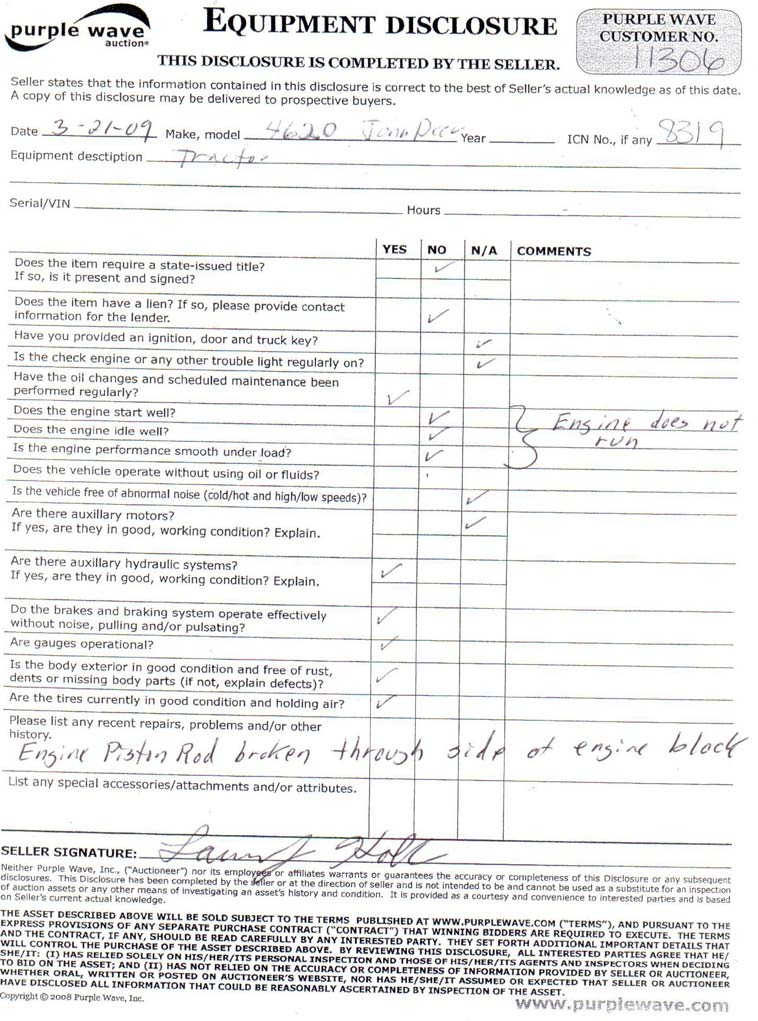 purple wave
auction®
EQUIPMENT DISCLOSURE
PURPLE WAVE
CUSTOMER NO.
11306
THIS DISCLOSURE IS COMPLETED BY THE SELLER.
Seller states that the information contained in this disclosure is correct to the best of Seller's actual knowledge as of this date.
A copy of this disclosure may be delivered to prospective buyers.
Date 3-21-09 Make, model 4620 John Deer Year ICN No., if any 8319
Equipment desctiption Tractor
Serial/VIN Hours
YES NO N/A COMMENTS
Does the item require a state-issued title? ✓
If so, is it present and signed?
Does the item have a lien? If so, please provide contact
information for the lender. ✓
Have you provided an ignition, door and truck key? ✓
Is the check engine or any other trouble light regularly on? ✓
Have the oil changes and scheduled maintenance been
performed regularly? ✓
Does the engine start well? ✓ Engine does not
Does the engine idle well? ✓ run
Is the engine performance smooth under load? ✓
Does the vehicle operate without using oil or fluids?
Is the vehicle free of abnormal noise (cold/hot and high/low speeds)? ✓
Are there auxillary motors? ✓
If yes, are they in good, working condition? Explain.
Are there auxillary hydraulic systems? ✓
If yes, are they in good, working condition? Explain.
Do the brakes and braking system operate effectively
without noise, pulling and/or pulsating? ✓
Are gauges operational? ✓
Is the body exterior in good condition and free of rust,
dents or missing body parts (if not, explain defects)? ✓
Are the tires currently in good condition and holding air? ✓
Please list any recent repairs, problems and/or other
history.
Engine Piston Rod broken through side of engine block
List any special accessories/attachments and/or attributes.
SELLER SIGNATURE:
Neither Purple Wave, Inc., ("Auctioneer") nor its employees or affiliates warrants or guarantees the accuracy or completeness of this Disclosure or any subsequent
disclosures. This Disclosure has been completed by the seller or at the direction of seller and is not intended to and cannot be used as a substitute for an inspection
of auction assets or any other means of investigating an asset's history and condition. It is provided as a courtesy and convenience to interested parties and is based
on Seller's current actual knowledge.
THE ASSET DESCRIBED ABOVE WILL BE SOLD SUBJECT TO THE TERMS PUBLISHED AT WWW.PURPLEWAVE.COM ("TERMS"), AND PURSUANT TO THE
EXPRESS PROVISIONS OF ANY SEPARATE PURCHASE CONTRACT ("CONTRACT") THAT WINNING BIDDERS ARE REQUIRED TO EXECUTE. THE TERMS
AND THE CONTRACT, IF ANY, SHOULD BE READ CAREFULLY BY ANY INTERESTED PARTY. THEY SET FORTH ADDITIONAL IMPORTANT DETAILS THAT
WILL CONTROL THE PURCHASE OF THE ASSET DESCRIBED ABOVE. BY REVIEWING THIS DISCLOSURE, ALL INTERESTED PARTIES AGREE THAT HE/
SHE/IT: (I) HAS RELIED SOLELY ON HIS/HER/ITS PERSONAL INSPECTION AND THOSE OF HIS/HER/ITS AGENTS AND INSPECTORS WHEN DECIDING
TO BID ON THE ASSET; AND (II) HAS NOT RELIED ON THE ACCURACY OR COMPLETENESS OF INFORMATION PROVIDED BY SELLER OR AUCTIONEER,
WHETHER ORAL, WRITTEN OR POSTED ON AUCTIONEER'S WEBSITE, NOR HAS HE/SHE/IT ASSUMED OR EXPECTED THAT SELLER OR AUCTIONEER
HAVE DISCLOSED ALL INFORMATION THAT COULD BE REASONABLY ASCERTAINED BY INSPECTION OF THE ASSET.
Copyright © 2008 Purple Wave, Inc.
www.purplewave.com